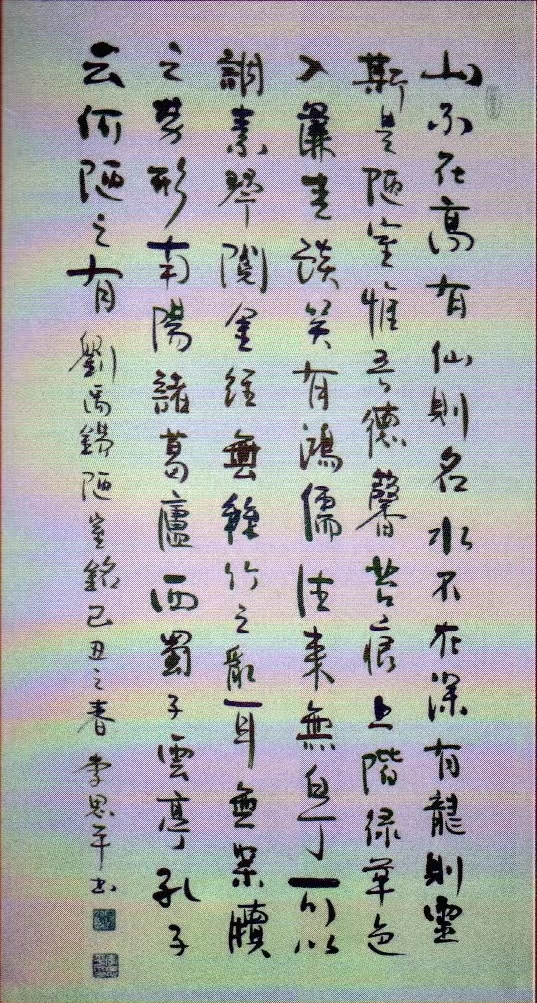 山不在高有仙則名水不在深有龍則靈
斯是陋室惟吾德馨苔痕上階緑草色
入簾青談笑有鴻儒往来無白丁可以
調素琴閲金經無竹之亂耳無案牘
之勞形南陽諸葛廬西蜀子雲亭孔子
云何陋之有 劉禹錫陋室銘己丑之春 李思平书